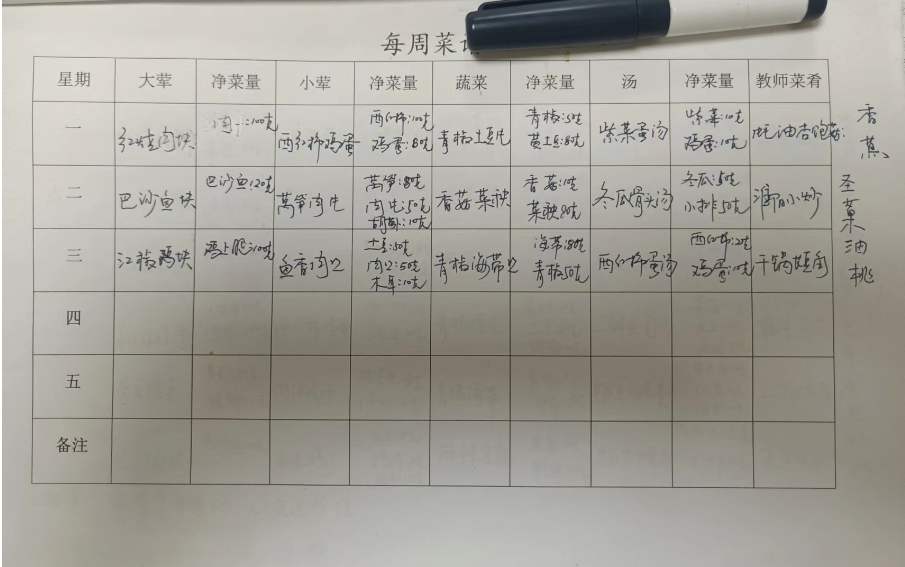 每周菜
星期 大荤 净菜量 小荤 净菜量 蔬菜 净菜量 汤 净菜量 教师菜肴
一 红烧肉块 肉 :100克 西红柿鸡蛋 西红柿:100克 鸡蛋:80克 青椒土豆片 青椒:50克 黄土豆:80克 紫菜蛋汤 紫菜:10克 鸡蛋:10克 蚝油杏鲍菇
二 巴沙鱼块 巴沙鱼120克 莴笋肉片 莴笋:80克 肉片:50克 胡萝卜:10克 香菇菜秧 香菇:10克 菜秧80克 冬瓜骨头汤 冬瓜:50克 小排50克 小炒
三 江椒鸡块 鸡上腿:100克 鱼香肉丝 土豆:80克 肉丝:50克 木耳:10克 青椒海带丝 海带:80克 青椒50克 西红柿蛋汤 西红柿:20克 鸡蛋:10克 干锅
四
五
备注
香蕉
圣菓油桃